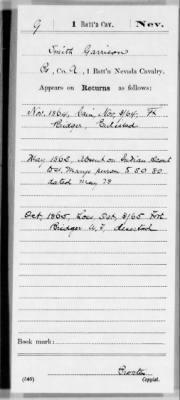 G | 1 Batt'n Cav. | Nev.
Smith Garrison
Co. A, 1 Batt'n Nevada Cavalry.
Appears on Returns as follows:
Nov. 1864, Gain, Nov. 9/64, Ft
Bridger, Enlisted
May 1865, Absent on Indian Scout
dated May
Oct. 1865, Loss, Oct. 3/65 Fort
Bridger U. T., deserted
Book mark:
(546)
Copyist.